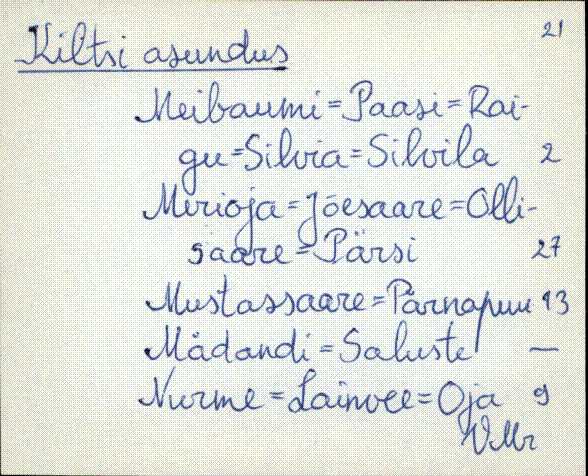 21
Kiltsi asundus
Meibaumi = Paasi = Rai-
gu = Silvia = Silvila 2
Merioja = Jõesaare = Olli-
saare = Pärsi 27
Mustassaare = Pärnapuu 13
Mädandi = Saluste —
Nurme = Lainvee = Oja 9
VMr